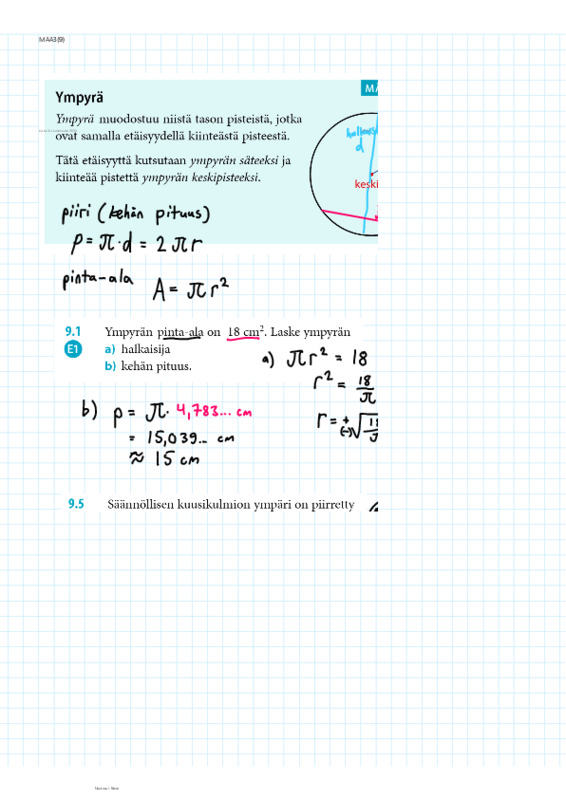 MAA3(9)
MA
Ympyrä
Ympyrä muodostuu niistä tason pisteistä, jotka
ovat samalla etäisyydellä kiinteästä pisteestä.
Tätä etäisyyttä kutsutaan ympyrän säteeksi ja
kiinteää pistettä ympyrän keskipisteeksi.
d
keski
piiri (kehän pituus)
p = π·d = 2πr
pinta-ala A = πr²
9.1 Ympyrän pinta-ala on 18 cm². Laske ympyrän
E1 a) halkaisija
b) kehän pituus.
a) πr² = 18
r² = 18/π
r = (+/-)√
b) p = π· 4,783... cm
= 15,039... cm
≈ 15 cm
9.5 Säännöllisen kuusikulmion ympäri on piirretty